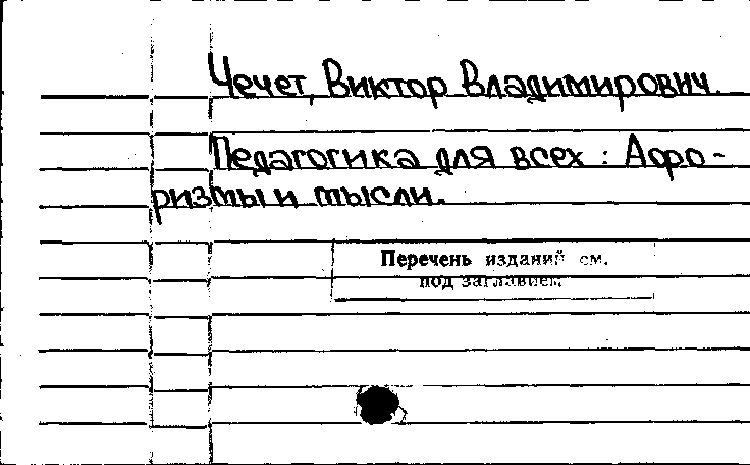 Чечет, Виктор Владимирович.
Педагогика для всех : Афо-
ризмы и мысли.
Перечень изданий см.
под заглавием